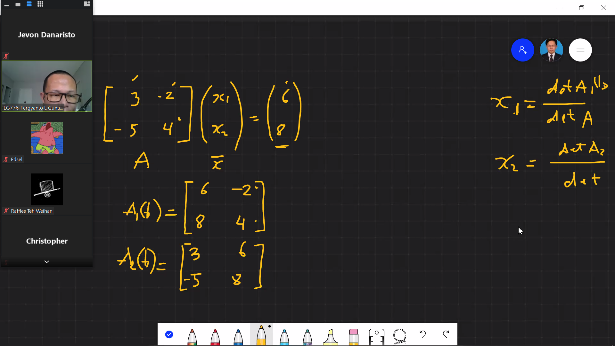 Jevon Danaristo
Christopher
[3 -2
-5 4] (x₁
x₂) = (6
8)
A x̄
A₁(b) = [6 -2
8 4]
A₂(b) = [3 6
-5 8]
x₁ = det A₁(b) / det A
x₂ = det A₂ / det